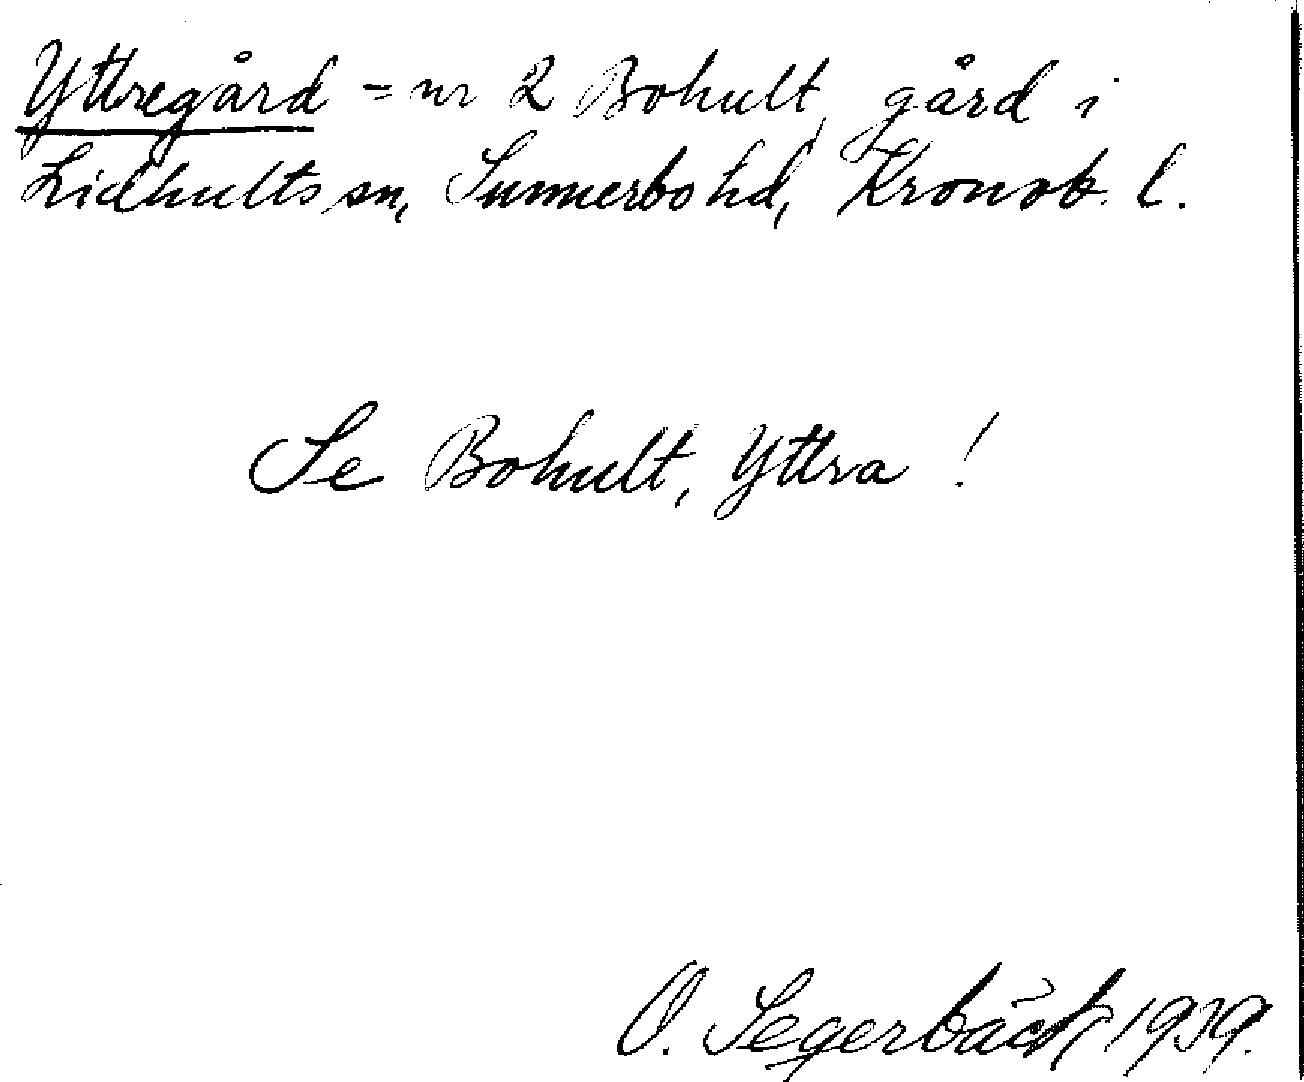 Yttregård = nr 2 Bohult, gård i
Lidhults sn, Sunnerbo hd, Kronob. l.
Se Bohult, Yttra !
O. Segerbäck 1939.